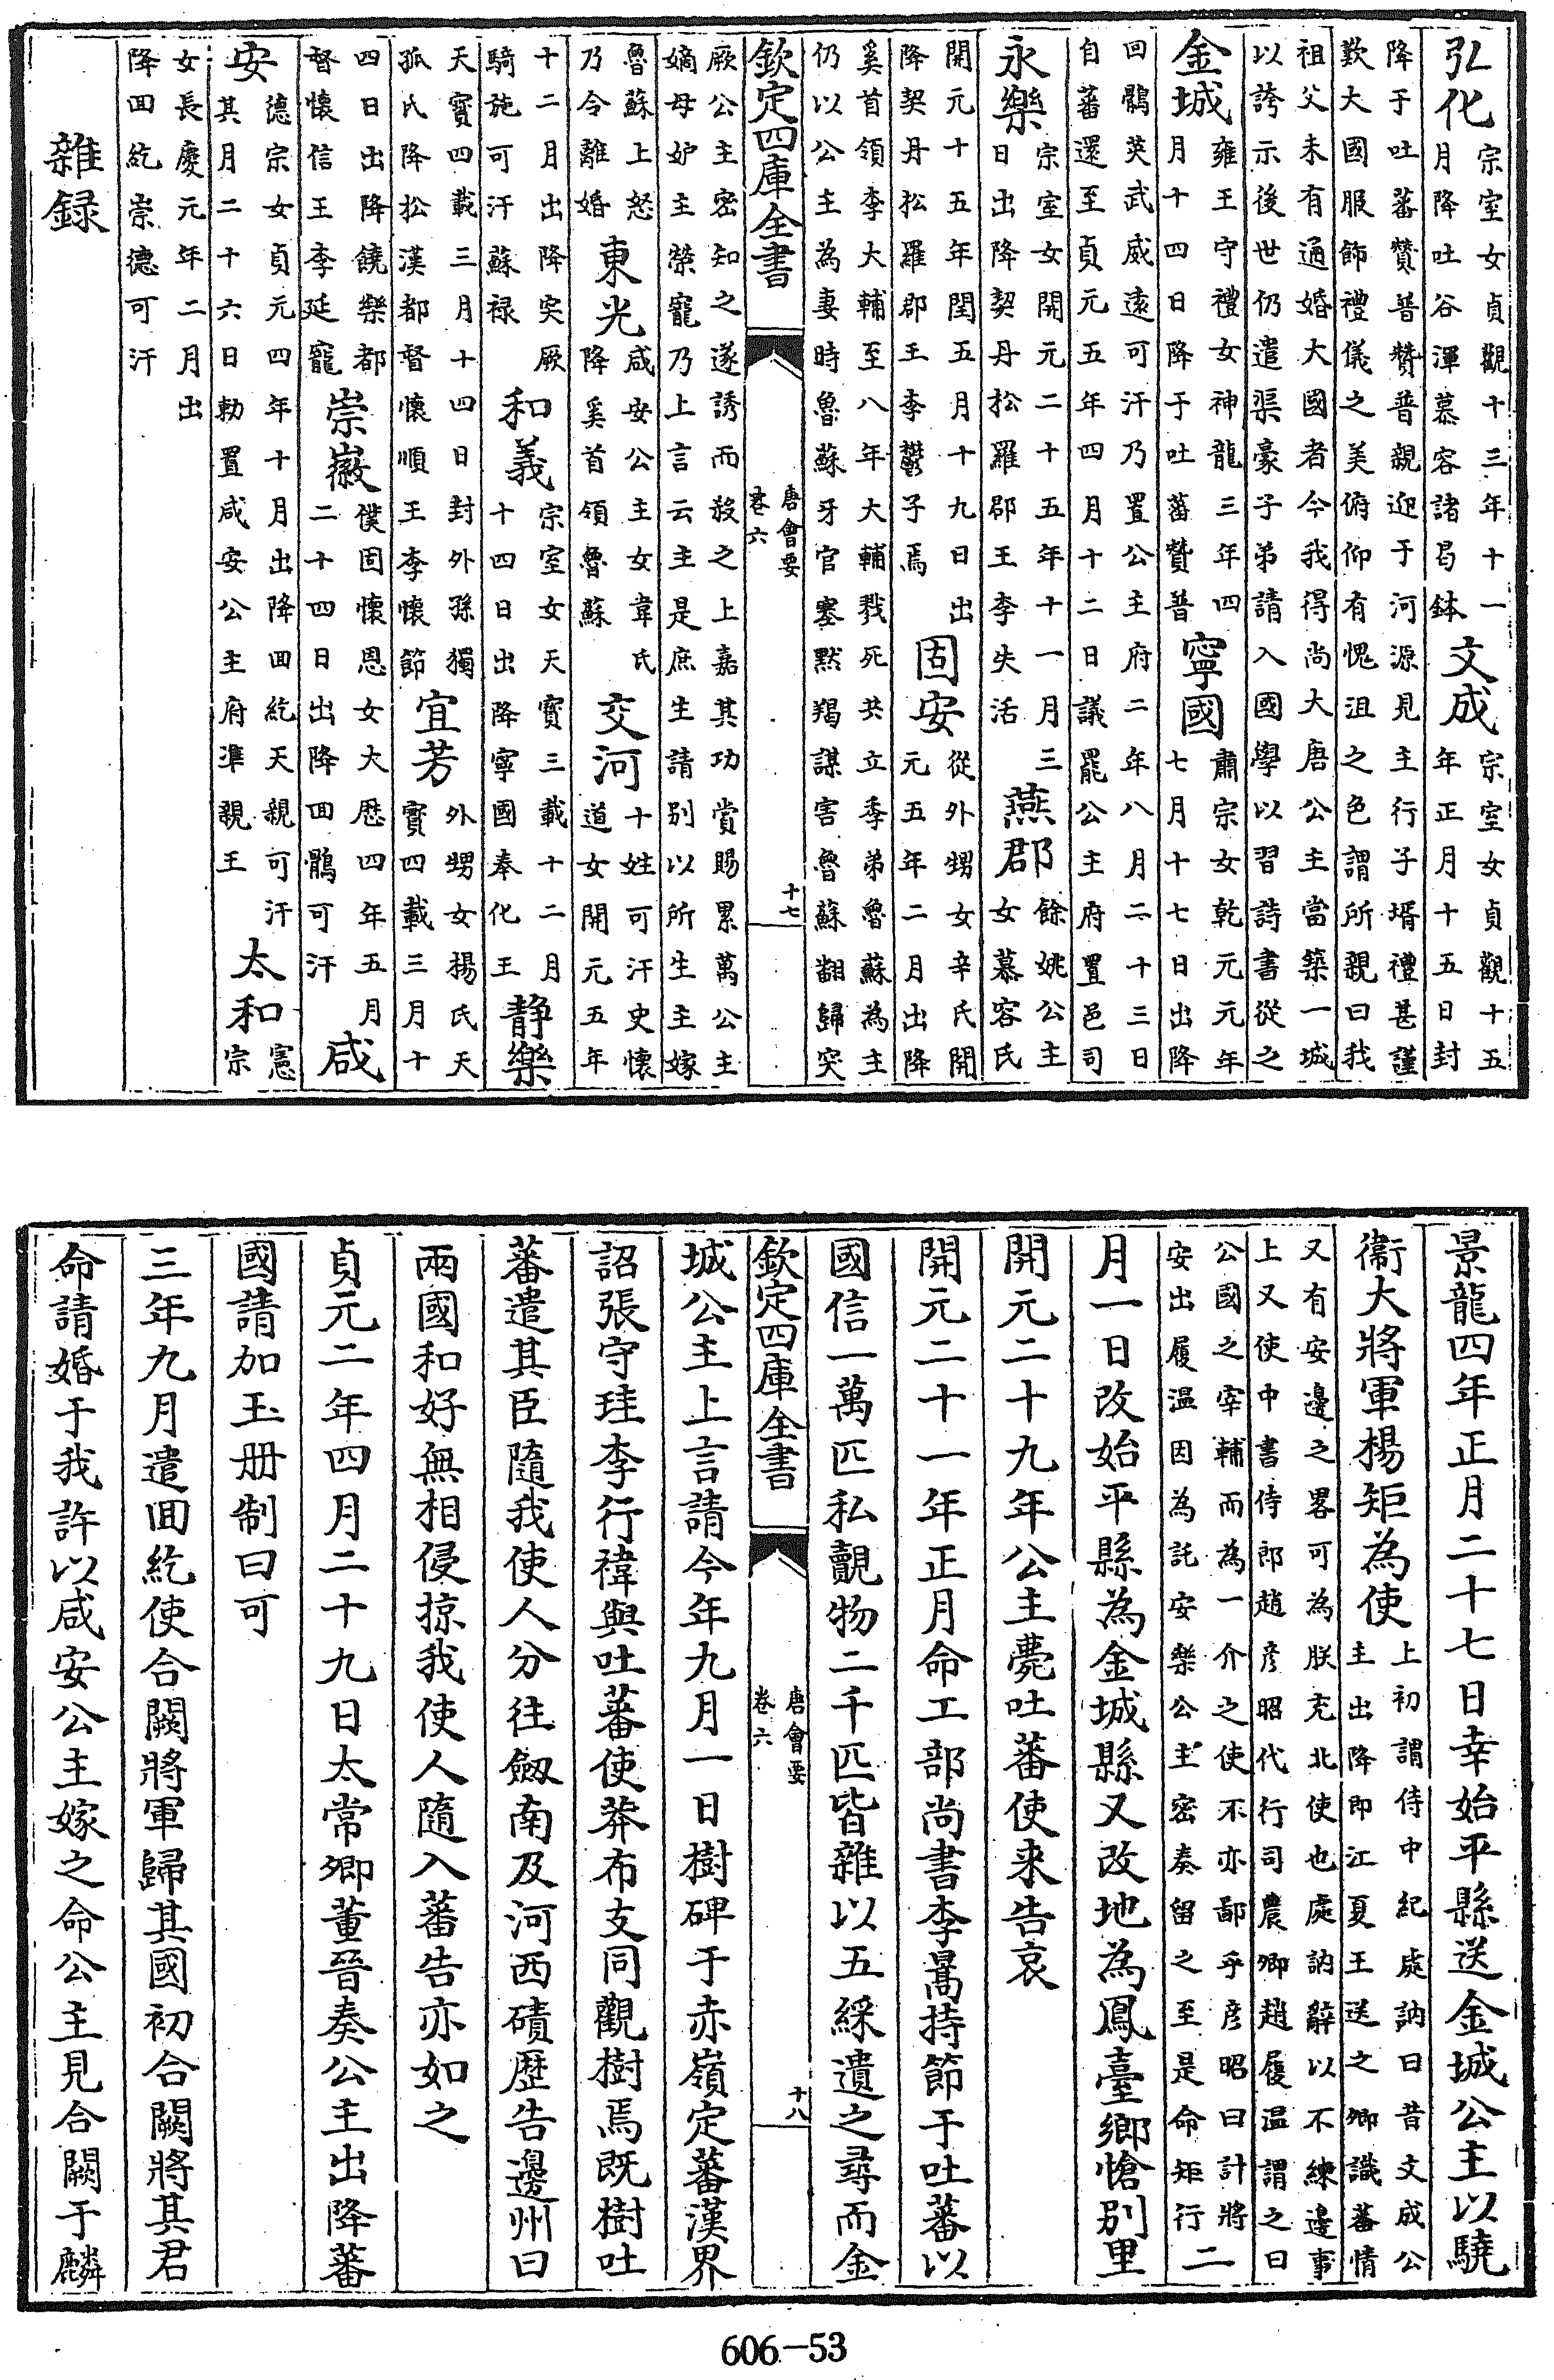 弘化宗室女貞觀十三年十一
月降吐谷渾慕容諸曷鉢
文成宗室女貞觀十五
年正月十五日封
降于吐蕃贊普贊普親迎于河源見主行子壻禮甚謹
歎大國服飾禮儀之美俯仰有愧沮之色謂所親曰我
祖父未有通婚大國者今我得尚大唐公主當築一城
以誇示後世仍遣渠豪子弟請入國學以習詩書從之
金城雍王守禮女神龍三年四
月十四日降于吐蕃贊普
寧國肅宗女乾元元年
七月十七日出降
回鶻英武威遠可汗乃置公主府二年八月二十三日
自蕃還至貞元五年四月十二日議罷公主府置邑司
永樂宗室女開元二十五年十一月三
日出降契丹松羅郡王李失活
燕郡餘姚公主
女慕容氏
開元十五年閏五月十九日出
降契丹松羅郡王李鬱子焉
固安從外甥女辛氏開
元五年二月出降
奚首領李大輔至八年大輔戮死共立季弟魯蘇為主
仍以公主為妻時魯蘇牙官塞默羯謀害魯蘇翻歸突
欽定四庫全書
唐會要
卷六
十七
厥公主密知之遂誘而殺之上嘉其功賞賜累萬公主
嫡母妒主榮寵乃上言云主是庶生請別以所生主嫁
魯蘇上怒
乃令離婚
東光咸安公主女韋氏
降奚首領魯蘇
交河十姓可汗史懷
道女開元五年
十二月出降突厥
騎施可汗蘇禄
和義宗室女天寶三載十二月
十四日出降寧國奉化王
静樂
天寶四載三月十四日封外孫獨
孤氏降松漢都督懷順王李懷節
宜芳外甥女楊氏天
寶四載三月十
四日出降饒樂都
督懷信王李延寵
崇徽僕固懷恩女大厯四年五月
二十四日出降回鶻可汗
咸
安德宗女貞元四年十月出降回紇天親可汗
其月二十六日勅置咸安公主府準親王
太和憲
宗
女長慶元年二月出
降回紇崇德可汗
雜録
景龍四年正月二十七日幸始平縣送金城公主以驍
衞大將軍楊矩為使上初謂侍中紀處訥曰昔文成公
主出降即江夏王送之卿識蕃情
又有安邊之畧可為朕充北使也處訥辭以不練邊事
上又使中書侍郎趙彦昭代行司農卿趙履温謂之曰
公國之宰輔而為一介之使不亦鄙乎彦昭曰計將
安出履温因為託安樂公主密奏留之至是命矩行
二
月一日改始平縣為金城縣又改地為鳳臺鄉愴别里
開元二十九年公主薨吐蕃使来告哀
開元二十一年正月命工部尚書李暠持節于吐蕃以
國信一萬匹私覿物二千匹皆雜以五綵遺之尋而金
欽定四庫全書
唐會要
卷六
十八
城公主上言請今年九月一日樹碑于赤嶺定蕃漢界
詔張守珪李行禕與吐蕃使莽布支同觀樹焉既樹吐
蕃遣其臣隨我使人分往劔南及河西磧歴告邊州曰
兩國和好無相侵掠我使人隨入蕃告亦如之
貞元二年四月二十九日太常卿董晉奏公主出降蕃
國請加玉册制曰可
三年九月遣回紇使合闕將軍歸其國初合闕將其君
命請婚于我許以咸安公主嫁之命公主見合闕于麟
606-53